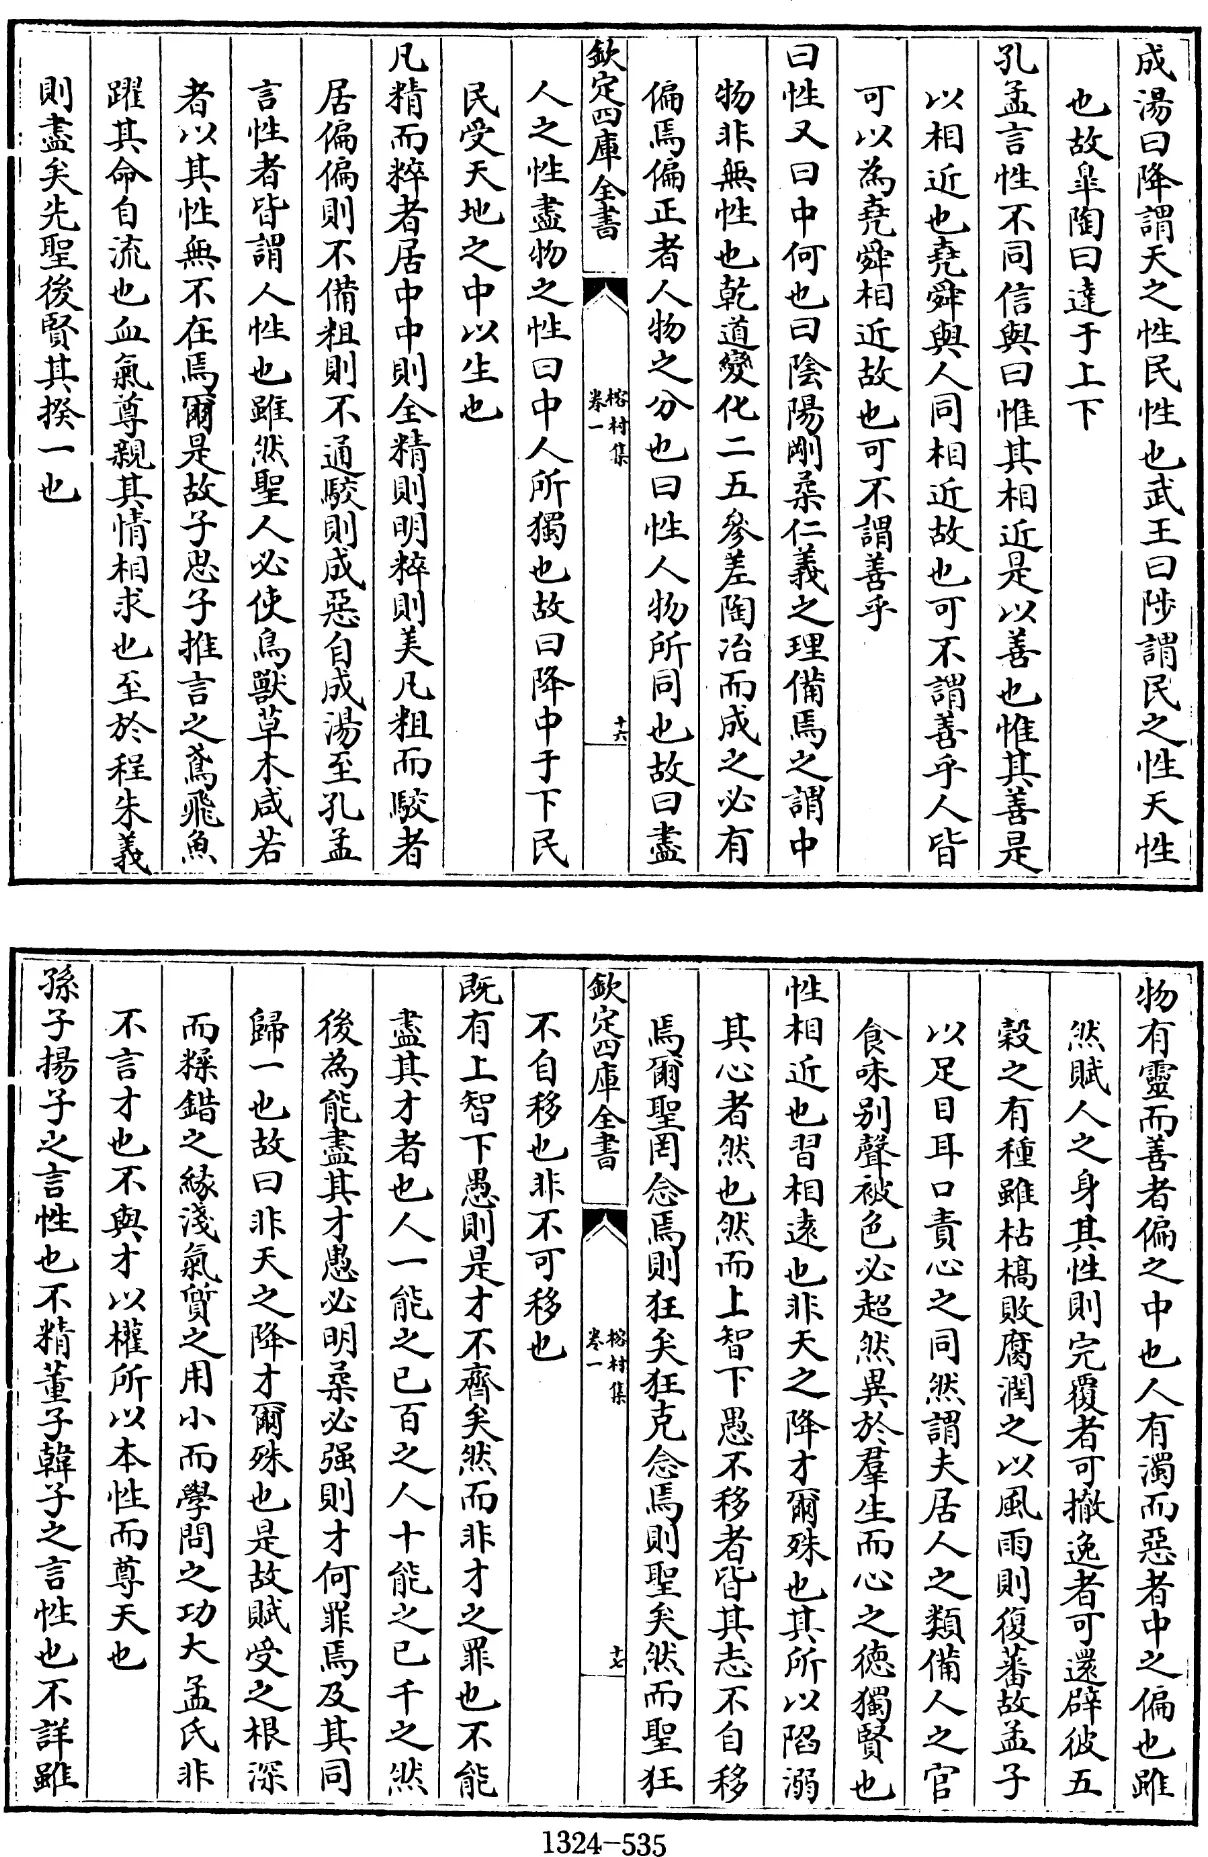 成湯曰降謂天之性民性也武王曰陟謂民之性天性
也故臯陶曰達于上下
孔孟言性不同信與曰惟其相近是以善也惟其善是
以相近也堯舜與人同相近故也可不謂善乎人皆
可以為堯舜相近故也可不謂善乎
曰性又曰中何也曰陰陽剛柔仁義之理備焉之謂中
物非無性也乾道變化二五參差陶冶而成之必有
偏焉偏正者人物之分也曰性人物所同也故曰盡
欽定四庫全書
榕村集
卷一
十六
人之性盡物之性曰中人所獨也故曰降中于下民
民受天地之中以生也
凡精而粹者居中中則全精則明粹則美凡粗而駮者
居偏偏則不備粗則不通駮則成惡自成湯至孔孟
言性者皆謂人性也雖然聖人必使鳥獸草木咸若
者以其性無不在焉爾是故子思子推言之鳶飛魚
躍其命自流也血氣尊親其情相求也至於程朱義
則盡矣先聖後賢其揆一也
物有靈而善者偏之中也人有濁而惡者中之偏也雖
然賦人之身其性則完覆者可撤逸者可還辟彼五
穀之有種雖枯槁敗腐潤之以風雨則復蕃故孟子
以足目耳口責心之同然謂夫居人之類備人之官
食味别聲被色必超然異於羣生而心之徳獨賢也
性相近也習相逺也非天之降才爾殊也其所以陷溺
其心者然也然而上智下愚不移者皆其志不自移
焉爾聖罔念焉則狂矣狂克念焉則聖矣然而聖狂
欽定四庫全書
榕村集
卷一
十七
不自移也非不可移也
既有上智下愚則是才不齊矣然而非才之罪也不能
盡其才者也人一能之已百之人十能之已千之然
後為能盡其才愚必明柔必强則才何罪焉及其同
歸一也故曰非天之降才爾殊也是故賦受之根深
而糅錯之緣淺氣質之用小而學問之功大孟氏非
不言才也不與才以權所以本性而尊天也
孫子揚子之言性也不精董子韓子之言性也不詳雖
1324-535